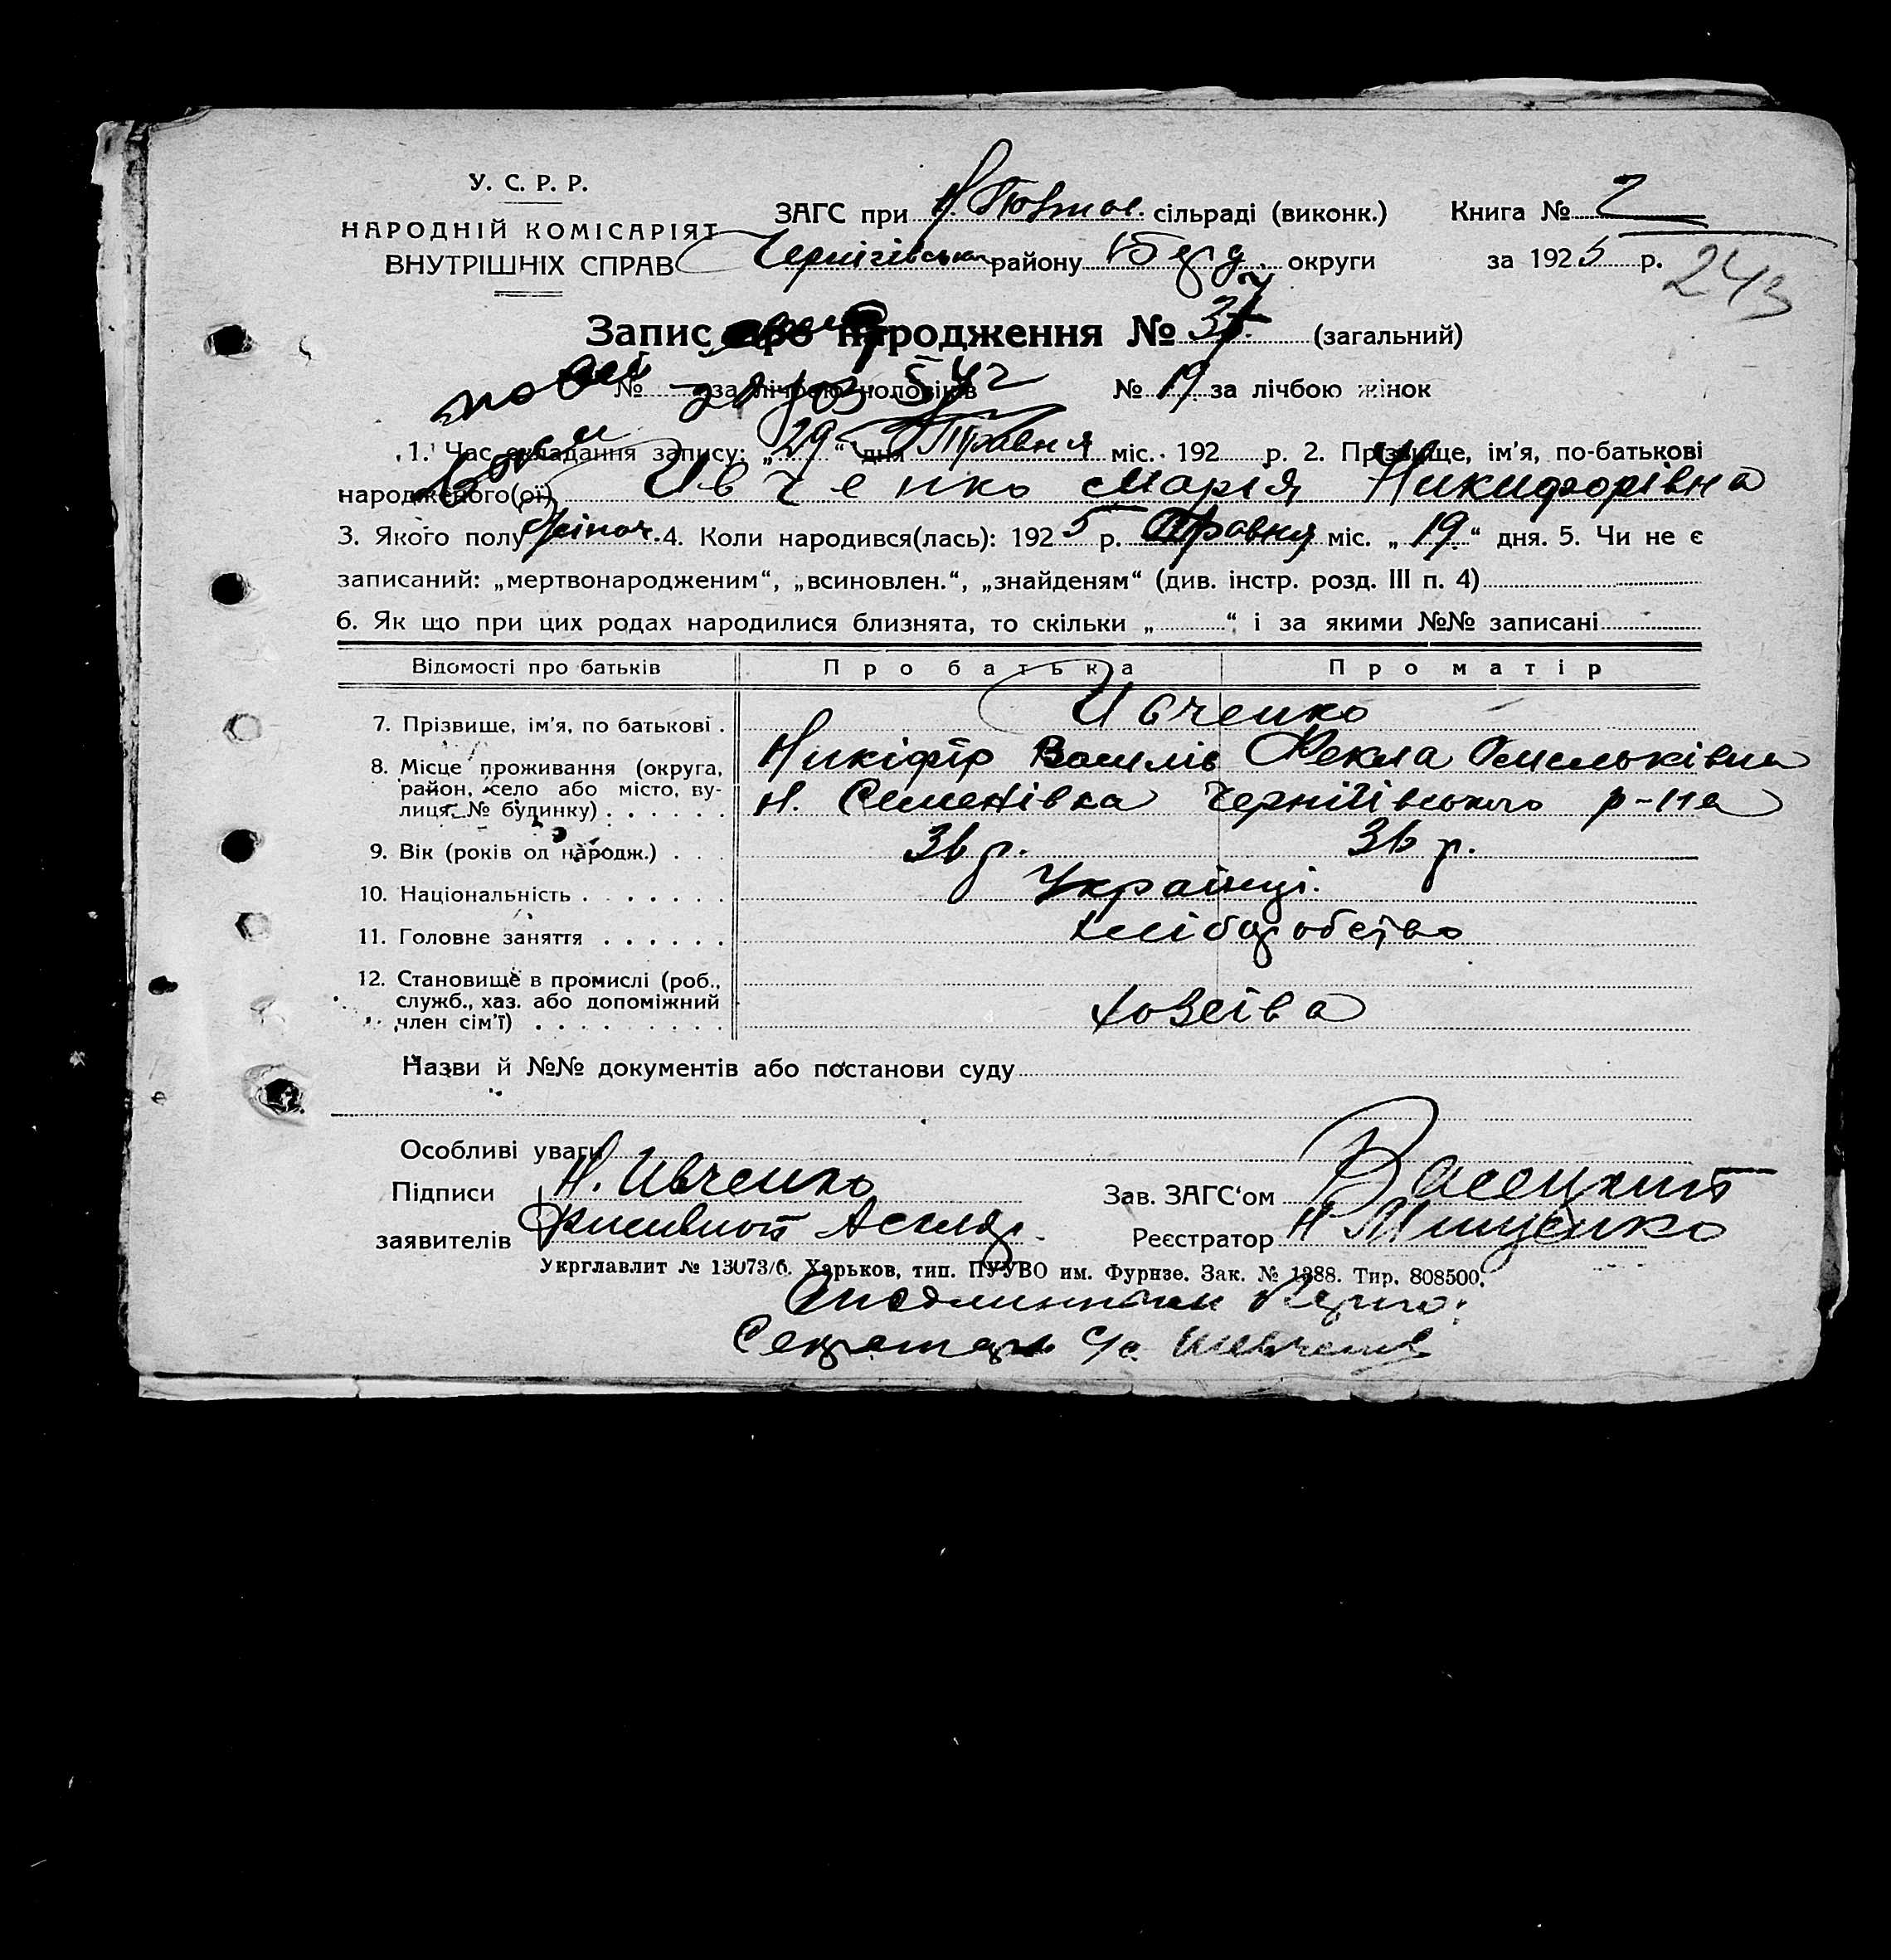 У. С. Р. Р.
НАРОДНІЙ КОМІСАРІЯТ
ВНУТРІШНІХ СПРАВ
ЗАГС при Н. Полтав. сільраді (виконк.) Книга № 2
Чернігівськ району Берд. округи за 1925 р.
243
Запис про народження № 37. (загальний)
№ за лічбою чоловіків № 19 за лічбою жінок
1. Час складання запису: „29“ дня Травня міс. 192 р. 2. Прізвище, ім'я, по-батькові
народженого(ої) Ивченко Марія Никифорівна
3. Якого полу жіноч. 4. Коли народився(лась): 1925 р. Травня міс. „19“ дня. 5. Чи не є
записаний: „мертвонародженим“, „всиновлен.“, „знайденям“ (див. інстр. розд. III п. 4)
6. Як що при цих родах народилися близнята, то скільки „ “ і за якими №№ записані
Відомості про батьків Про батька Про матір
7. Прізвище, ім'я, по батькові . Ивченко
Никіфір Василів Фекла Омельківна
8. Місце проживання (округа,
район, село або місто, ву-
лиця № будинку) . . . . . . Н. Семенівка Чернігівського р-на
9. Вік (років од народж.) . . . 36 р. 36 р.
10. Національність . . . . . . . Українці.
11. Головне заняття . . . . . . Хліборобство
12. Становище в промислі (роб.,
служб., хаз. або допоміжний
член сім'ї) . . . . . . . . . Хозеіва
Назви й №№ документів або постанови суду
Особливі уваги
Підписи Н. Ивченко Зав. ЗАГС'ом Васецкий
заявителів Реєстратор Н Мищенко
Укрглавлит № 13073/6. Харьков, тип. ПУУВО им. Фрунзе. Зак. № 1388. Тир. 808500.
Секретарь С/с.